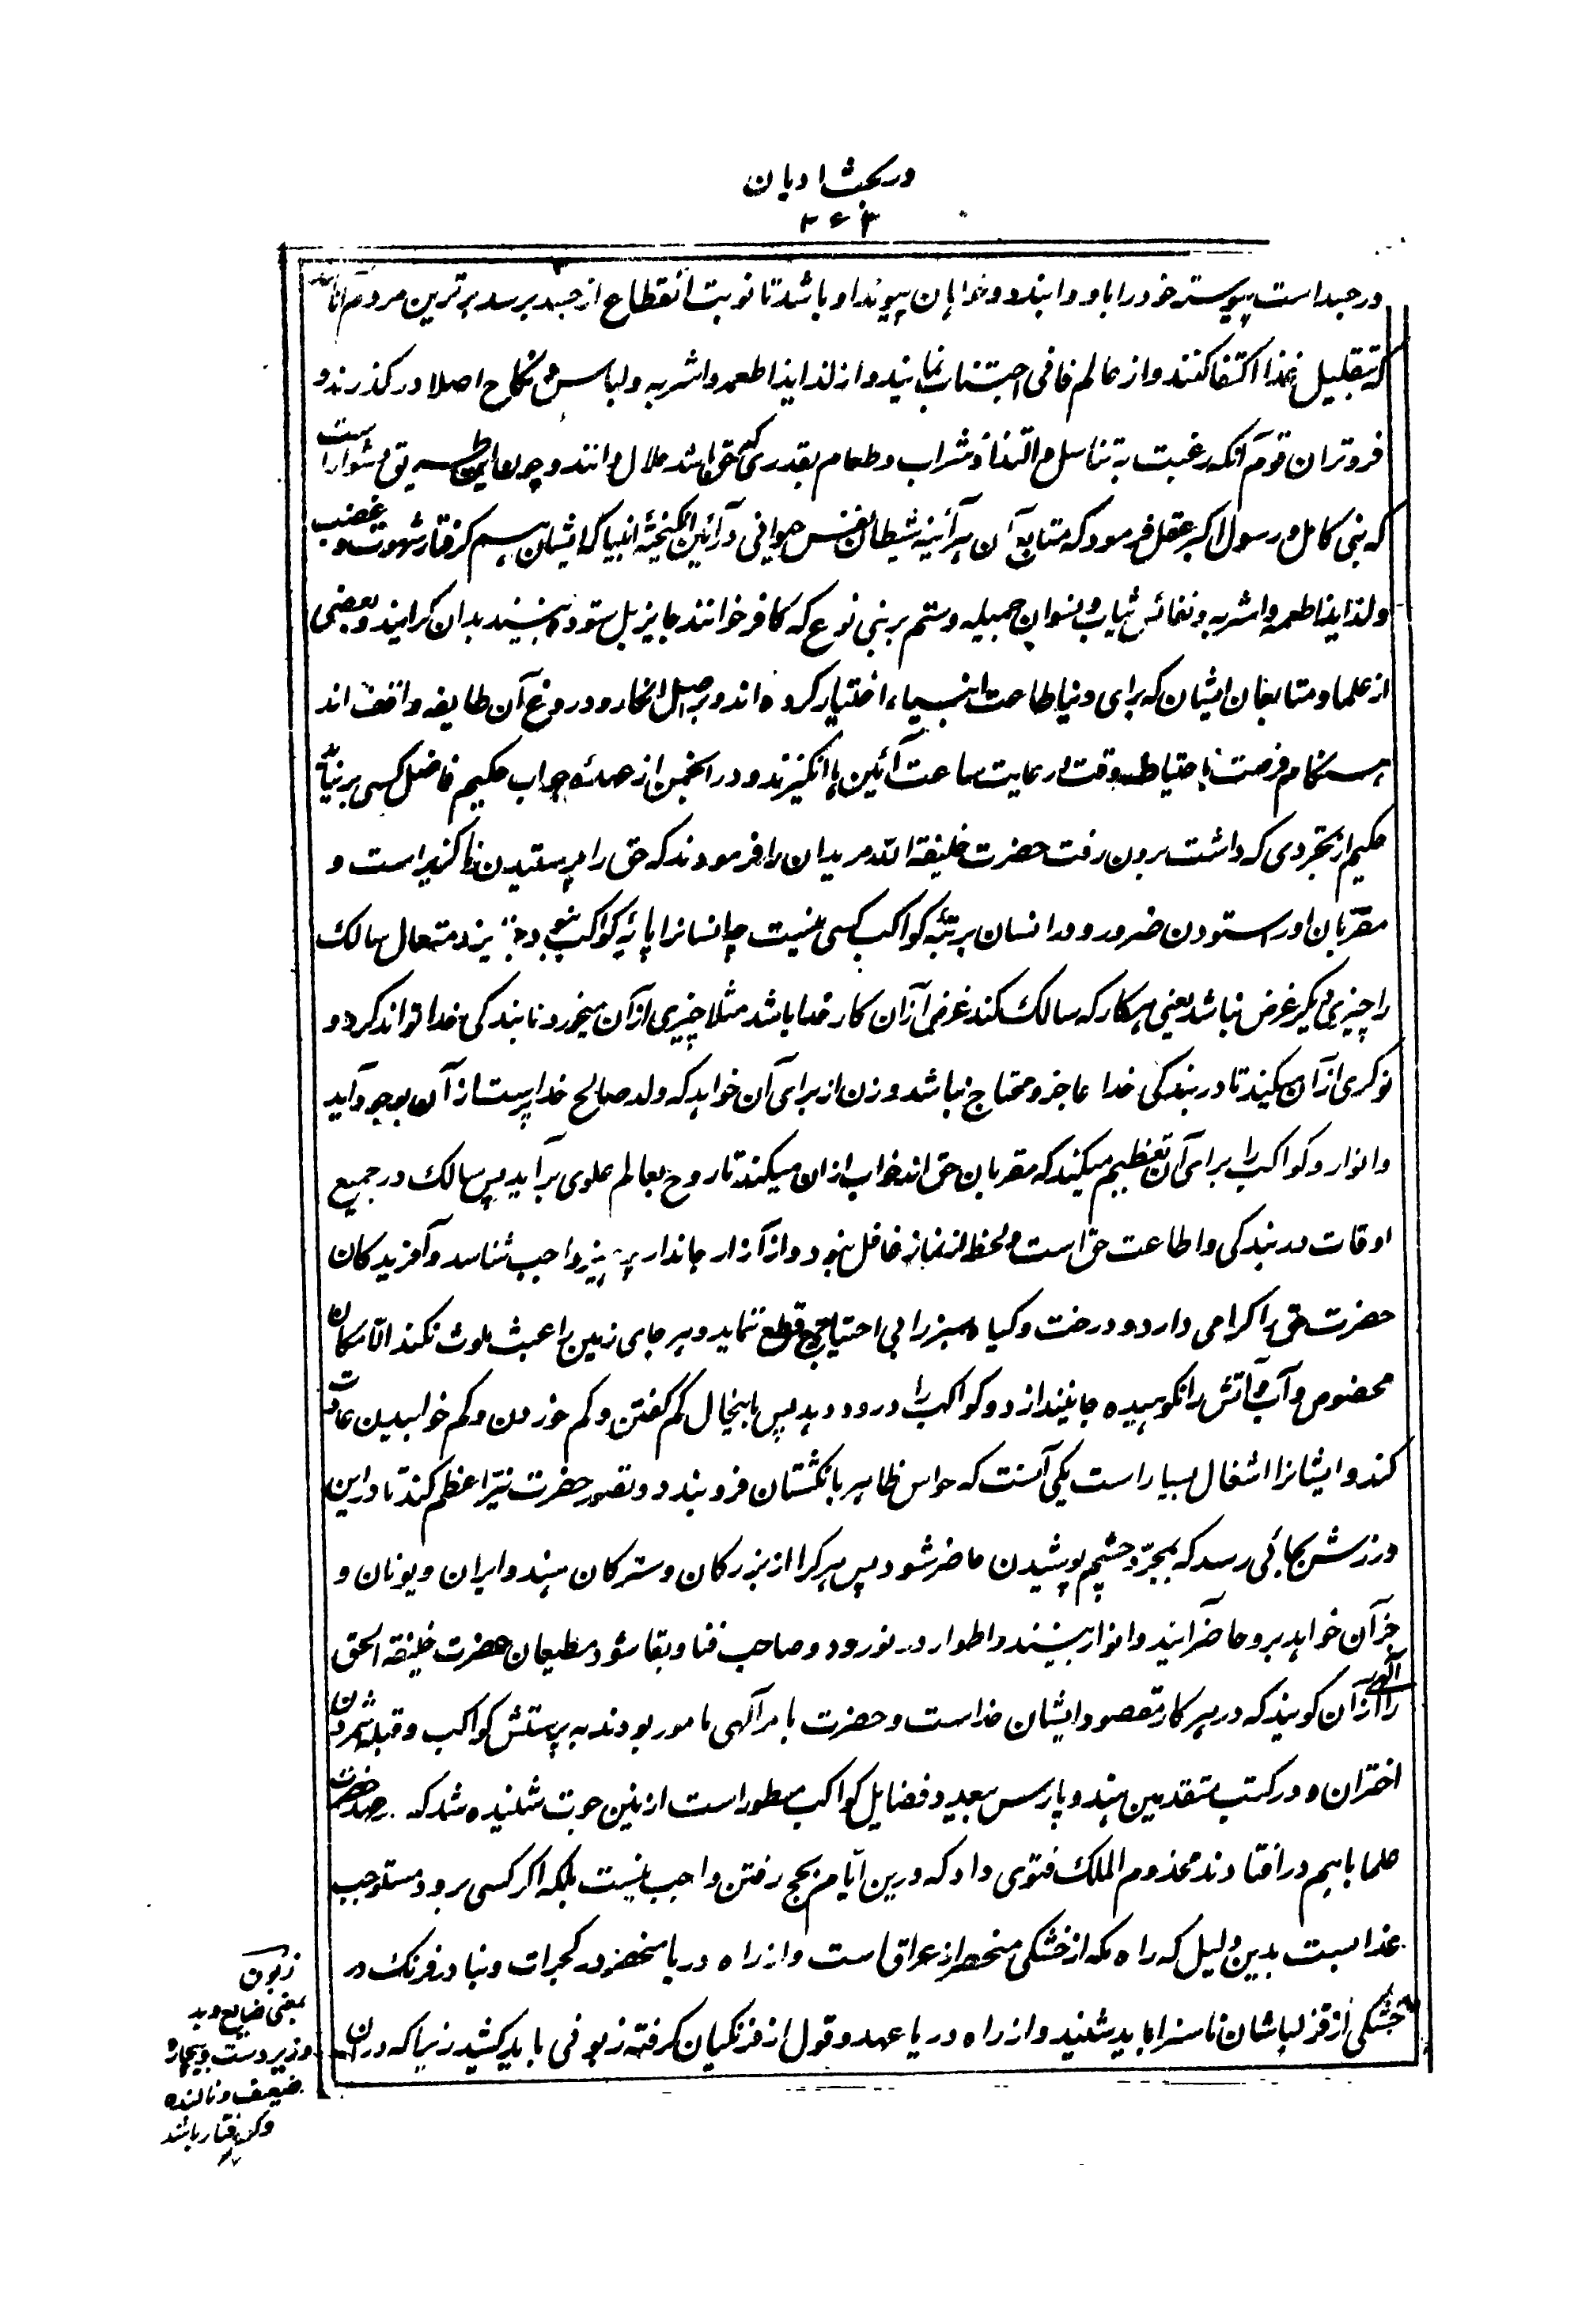 در بحث ادیان
۲۶۳
در جسد است پیوسته خود را با او دانند و خواهان پیوند او باشد تا نوبت انقطاع از جسد برسد برترین مردم آنانند
که بتقلیل غذا اکتفا کنند و از عالم فانی اجتناب نمایند و از لذایذ اطعمه و اشربه و لباس و نکاح اصلا در گذرند و
فروتران قوم آنکه رغبت به تناسل و التذاذ شراب و طعام بقدری که حق باشد حلال دانند و چون این طریق دشوار است
که نبی کامل و رسول اکبر عقل فرمود که متابع آن هر آئینه شیطان نفس حیوانی در آئین انگیخته انبیا که ایشان هم گرفتار شهوت و غضب
و لذایذ اطعمه و اشربه و نفائس ثیاب و نسوان جمیله و ستم بر بنی نوع که کافر خوانند جایز بل ستوده بینند بدان گرایند و بعضی
از علما و متابعان ایشان که برای دنیا طاعت انبیاء اختیار کرده اند و بر اصل انکار و دروغ آن طایفه واقف اند
هنگام فرصت با احتیاط وقت و رعایت ساعت آئین ها انگیزند و در انجمن از عهده جواب حکیم فاضل کسی بر نیامد
حکیم از تجردی که داشت برون رفت حضرت خلیفة الله مریدان را فرمودند که حق را پرستیدن ناگزیر است و
مقربان او را ستودن ضرور و در انسان بر تبه کواکب کسی نیست چه انسانرا پایه کواکب نبود بجز یزد متعال سالک
را چیزی دیگر غرض نباشد یعنی هر کار که سالک کند غرض از آن کار خدا باشد مثلا چیزی از آن میخورد تا بندگی خدا تواند کرد و
نوکری از آن میکند تا در بندگی خدا عاجز و محتاج نباشد و زن از برای آن خواهد که ولد صالح خدا پرست از آن بوجود آید
و انوار و کواکب را برای آن تعظیم میکند که مقربان حق اند خواب از ان میکند تا روح بعالم علوی برآید پس سالک در جمیع
اوقات در بندگی و اطاعت حق است و لحظه از نماز غافل نبود و از آزار جاندار پرهیز واجب شناسد و آفریدگان
حضرت حق را گرامی دارد و درخت و گیاه سبز را بی احتیاج قطع ننماید و هر جای زمین را عبث ملوث نکند الا مکان
مخصوص و آب و آتش را نکوهیده جا نیندازد و کواکب را درود دهد پس باینحال کم گفتن و کم خوردن و کم خوابیدن عادت
کند و ایشانرا اشغال بسیار است یکی آنست که حواس ظاهر بانگشتان فرو بندد و تصور حضرت نیر اعظم کند تا در این
ورزش بجائی رسد که بمجرد چشم پوشیدن حاضر شود پس هر کرا از بزرگان و سترگان هند و ایران و یونان و
جز آن خواهد برو حاضر آیند و انوار بیند و اطوار در نوردد و صاحب فنا و بقا شود مطیعان حضرت خلیفة الحق
را الهی از آن گویند که در هر کار مقصود ایشان خداست و حضرت بامر الهی مامور بودند به پرستش کواکب و قبله شمردن
اختران و در کتب متقدمین هند و پارس بعید و فضایل کواکب مسطور است از نین حوت شنیده شد که در عهد حضرت
علما باهم در افتادند مخدوم الملک فتوی داد که درین ایام بحج رفتن واجب نیست بلکه اگر کسی برود مستوجب
عذابست بدین دلیل که راه مکه از خشکی منحصر از عراق است و از راه دریا منحصر در گجرات و بنادر فرنگ در
خشکی از قزلباشان ناسزا باید شنید و از راه دریا عهد و قول از فرنگیان گرفته زبونی باید کشید زیرا که در ان
زبون
بمعنی ضایع و بد
و زیردست و بیچاره
ضعیف و نالنده
و گرفتار باشد